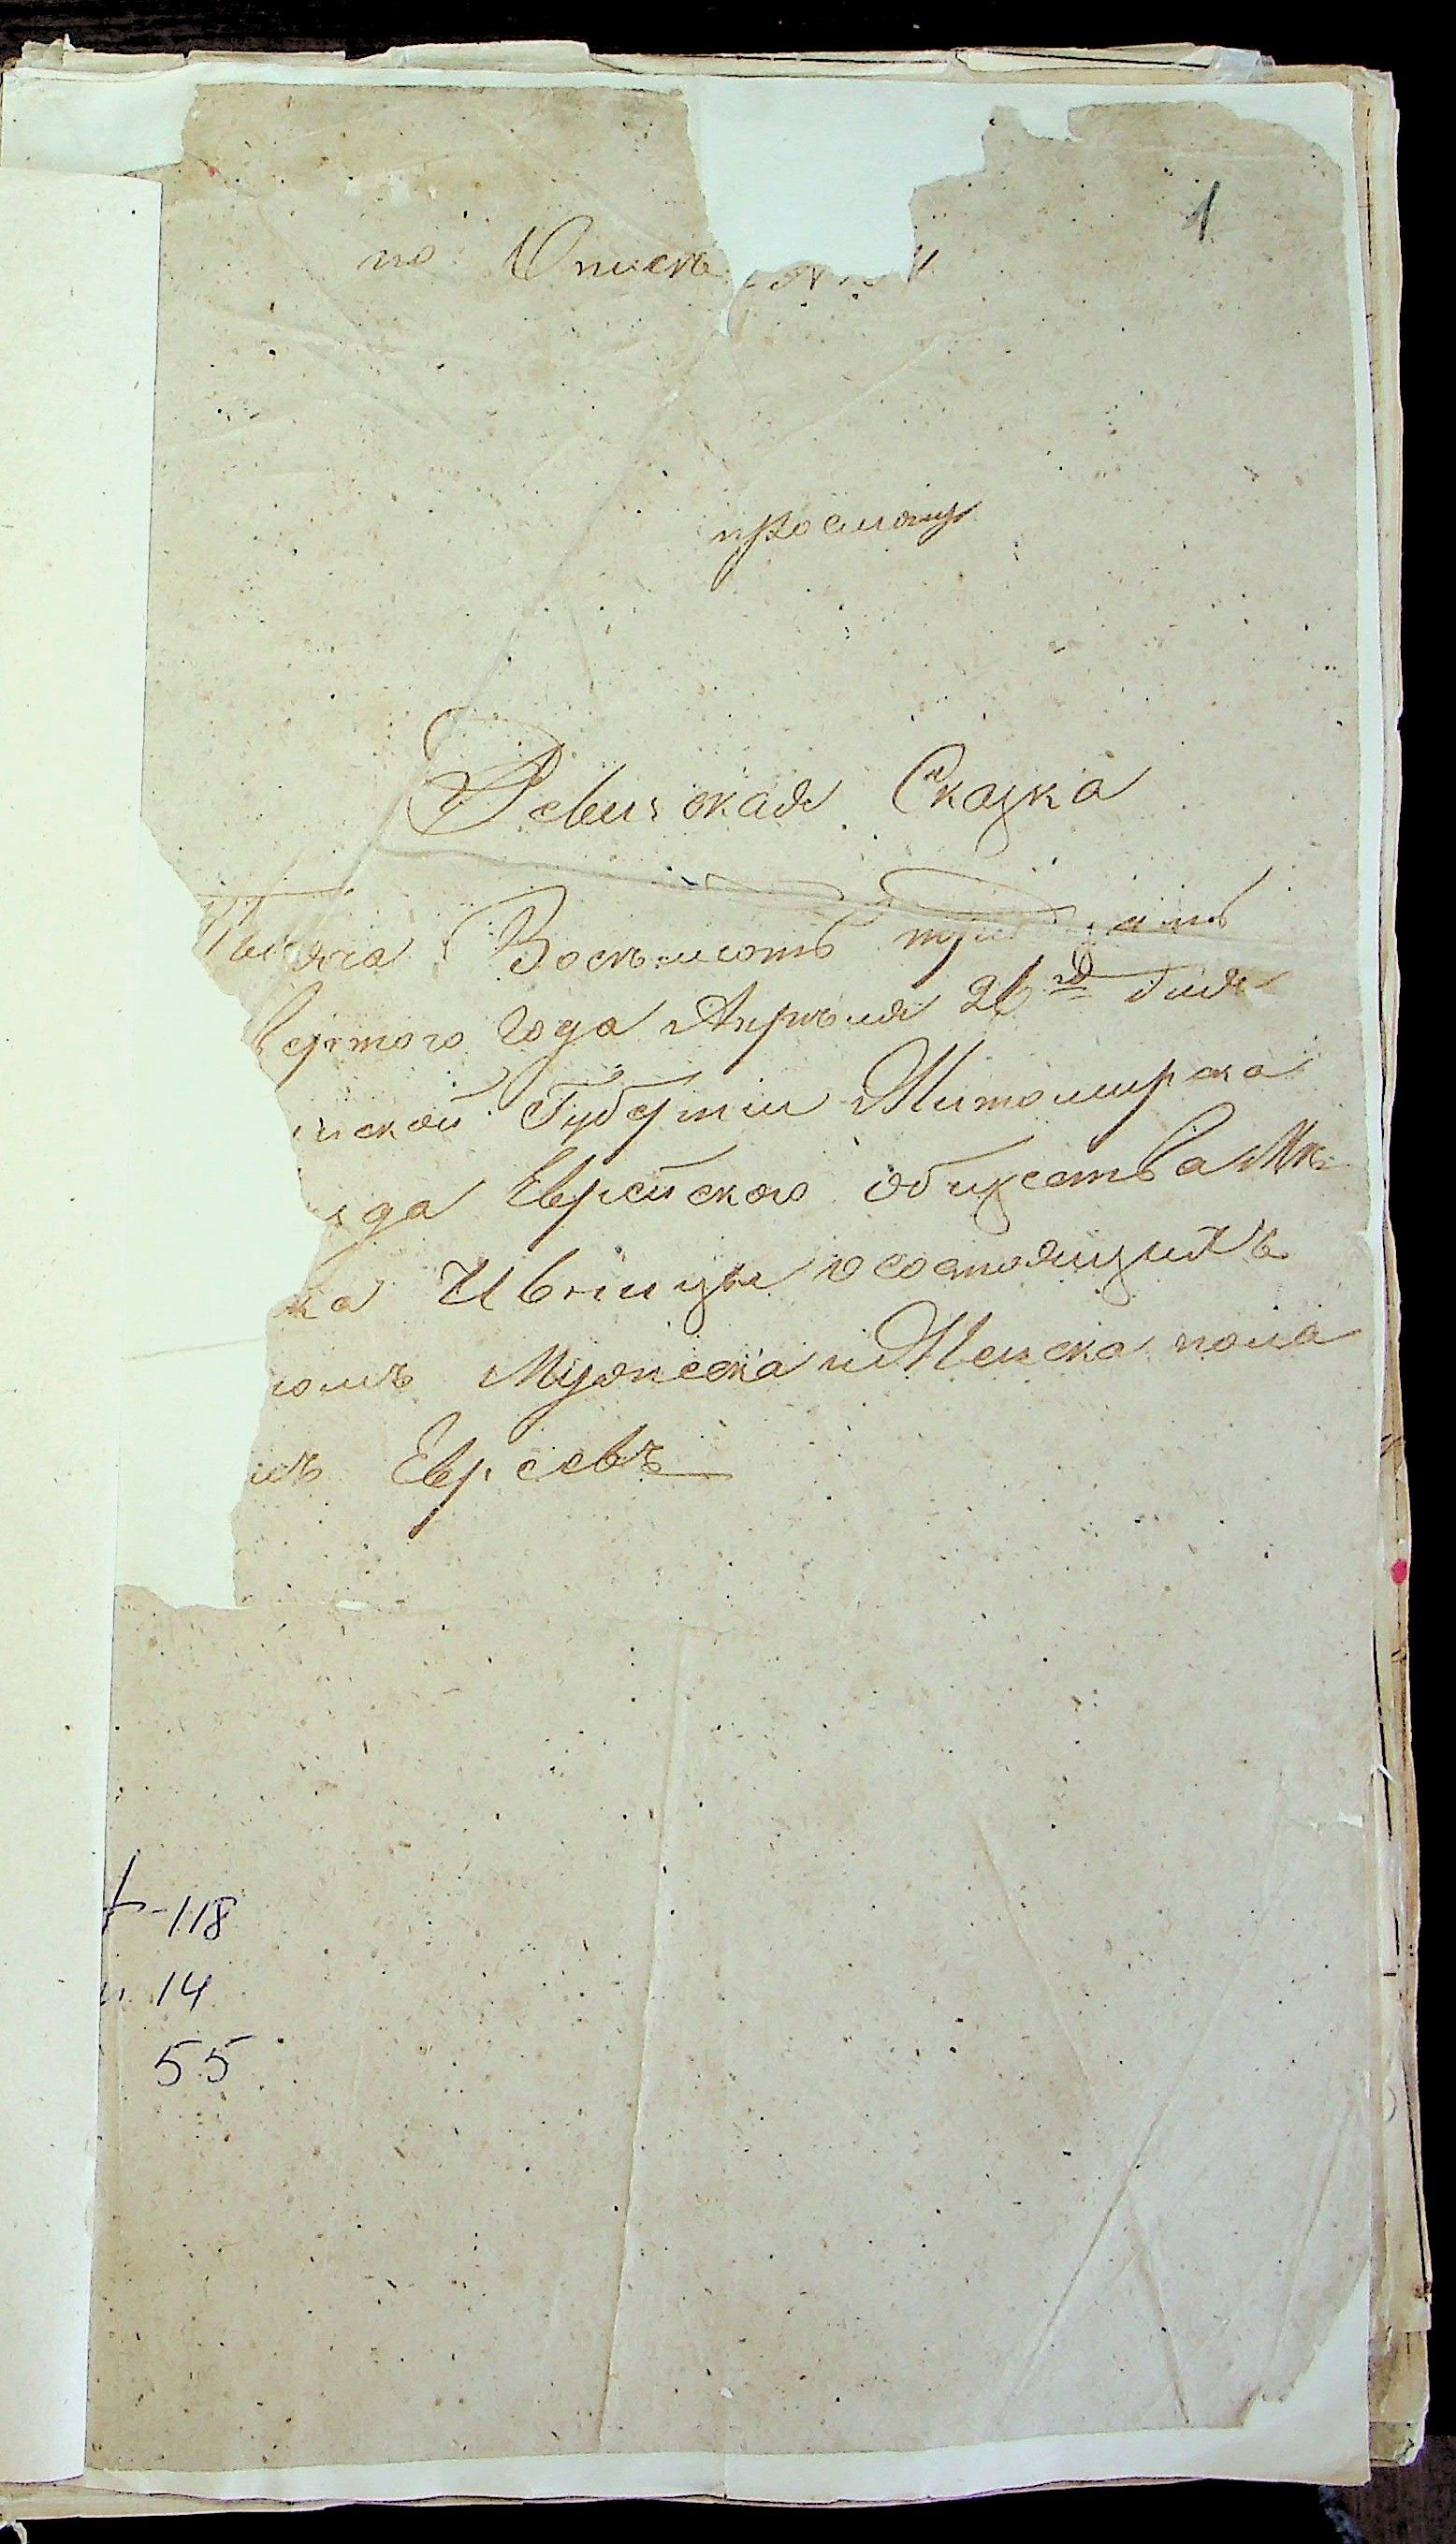 1
по Описѣ №
Ревизская Сказка
Тысяча Восемьсотъ тридцать
вертого Года Апрѣля 26го дня
нской Губерніи Житомирска
зда Еврейского общества Мѣ
ка Ивницы о состоящихъ
Мужеска и Женска пола
Евреевъ
ф-118
14
55